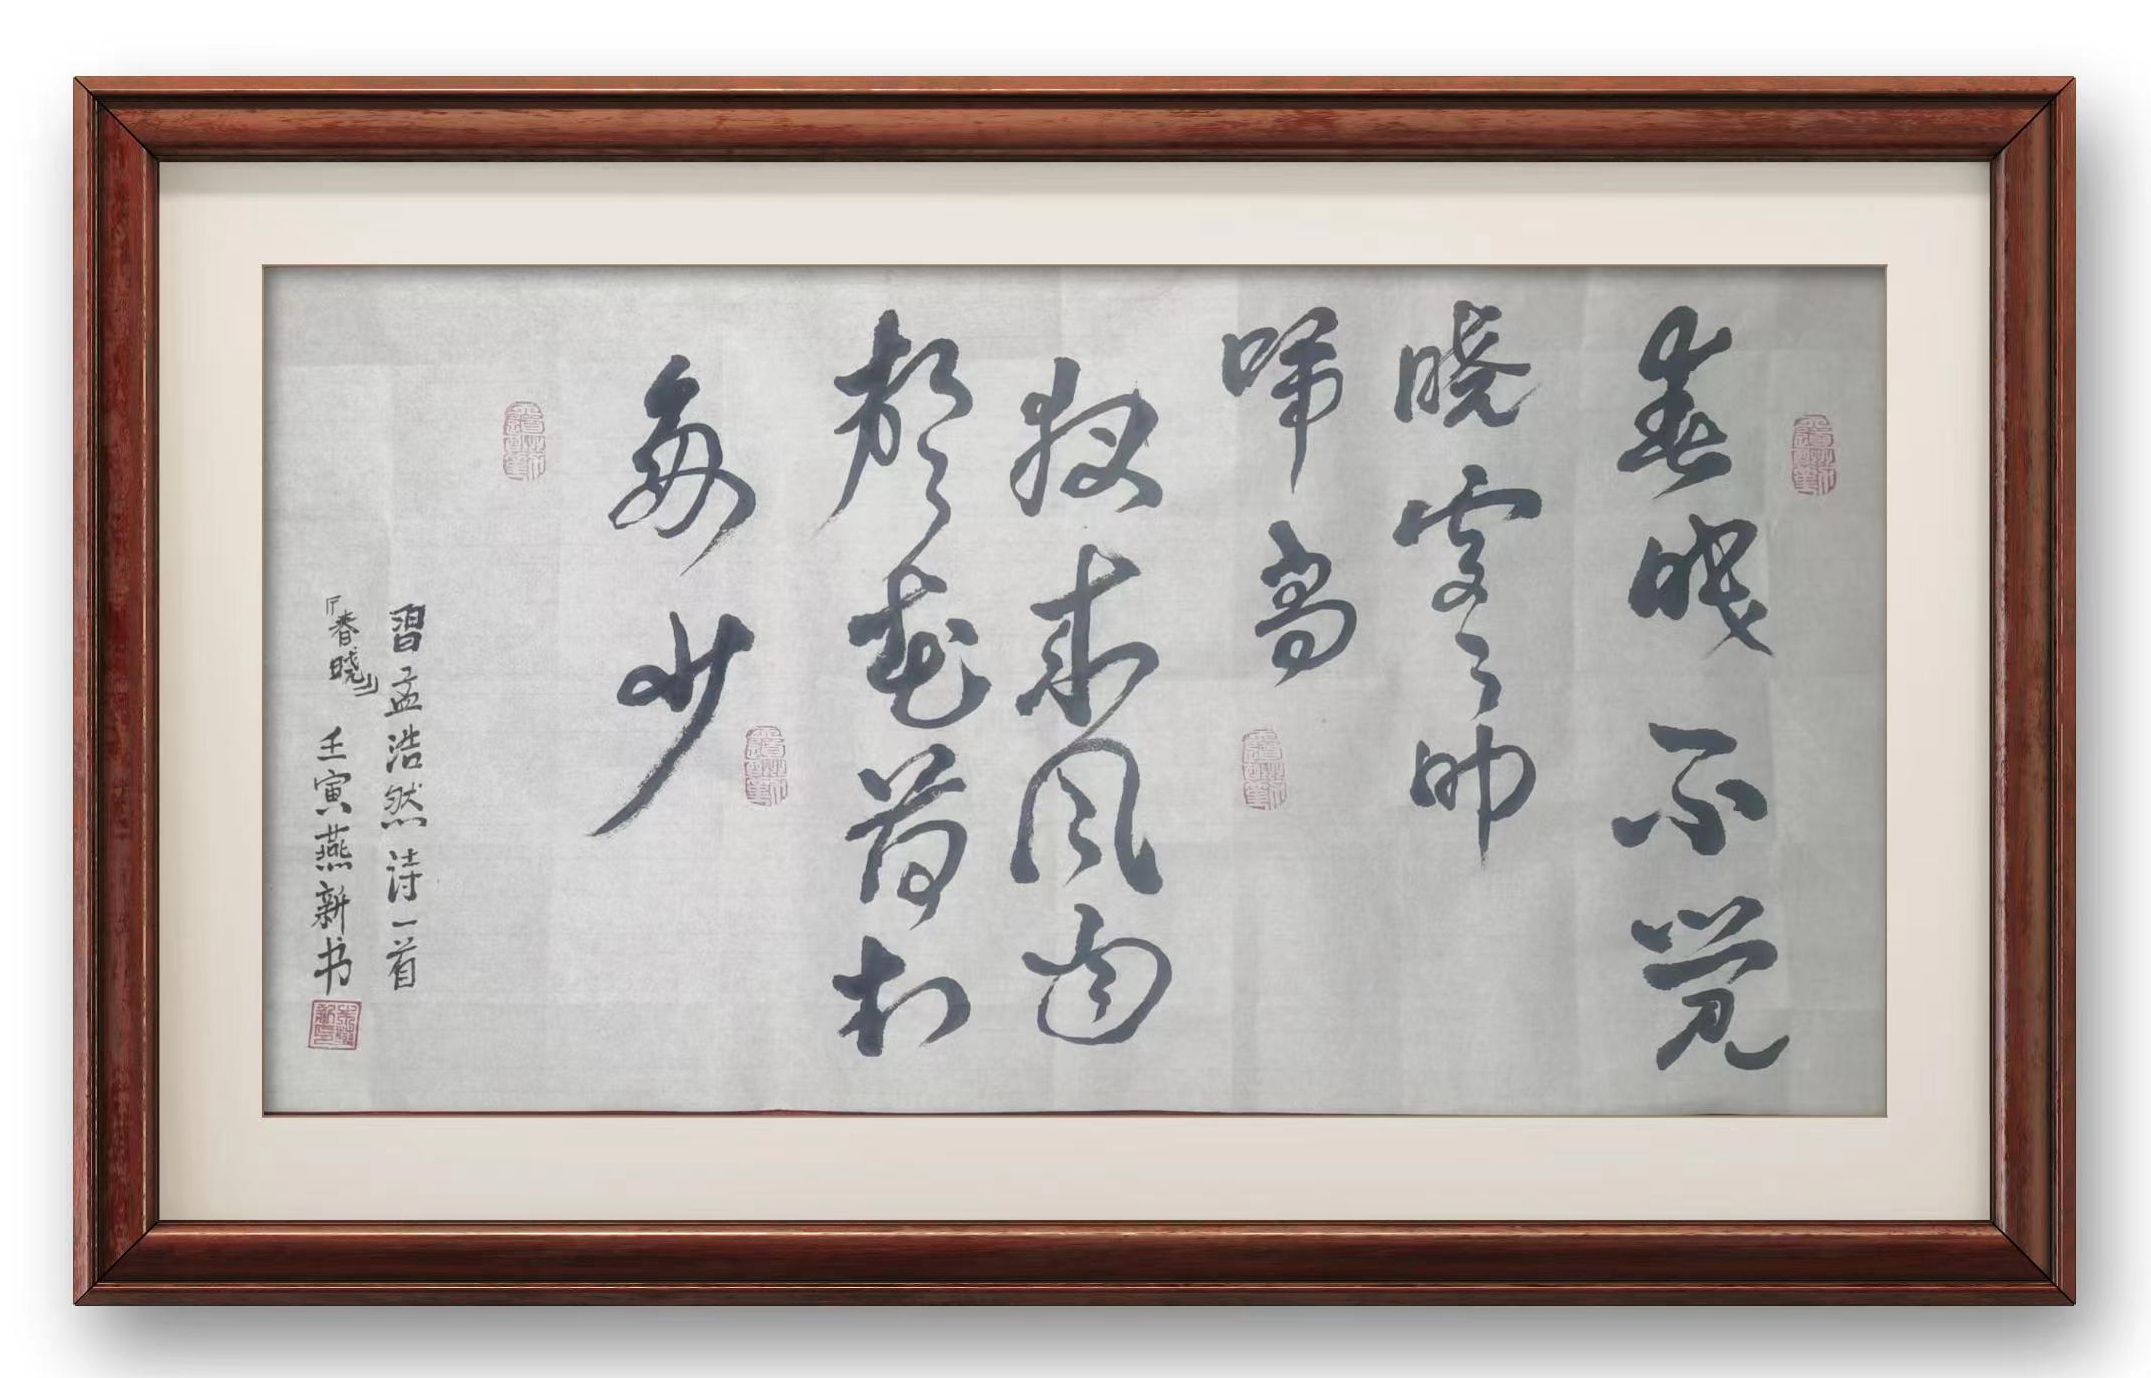 春眠不觉
晓处々闻
啼鸟
夜来风雨
声花落知
多少
習孟浩然诗一首
「春晓」壬寅燕新书